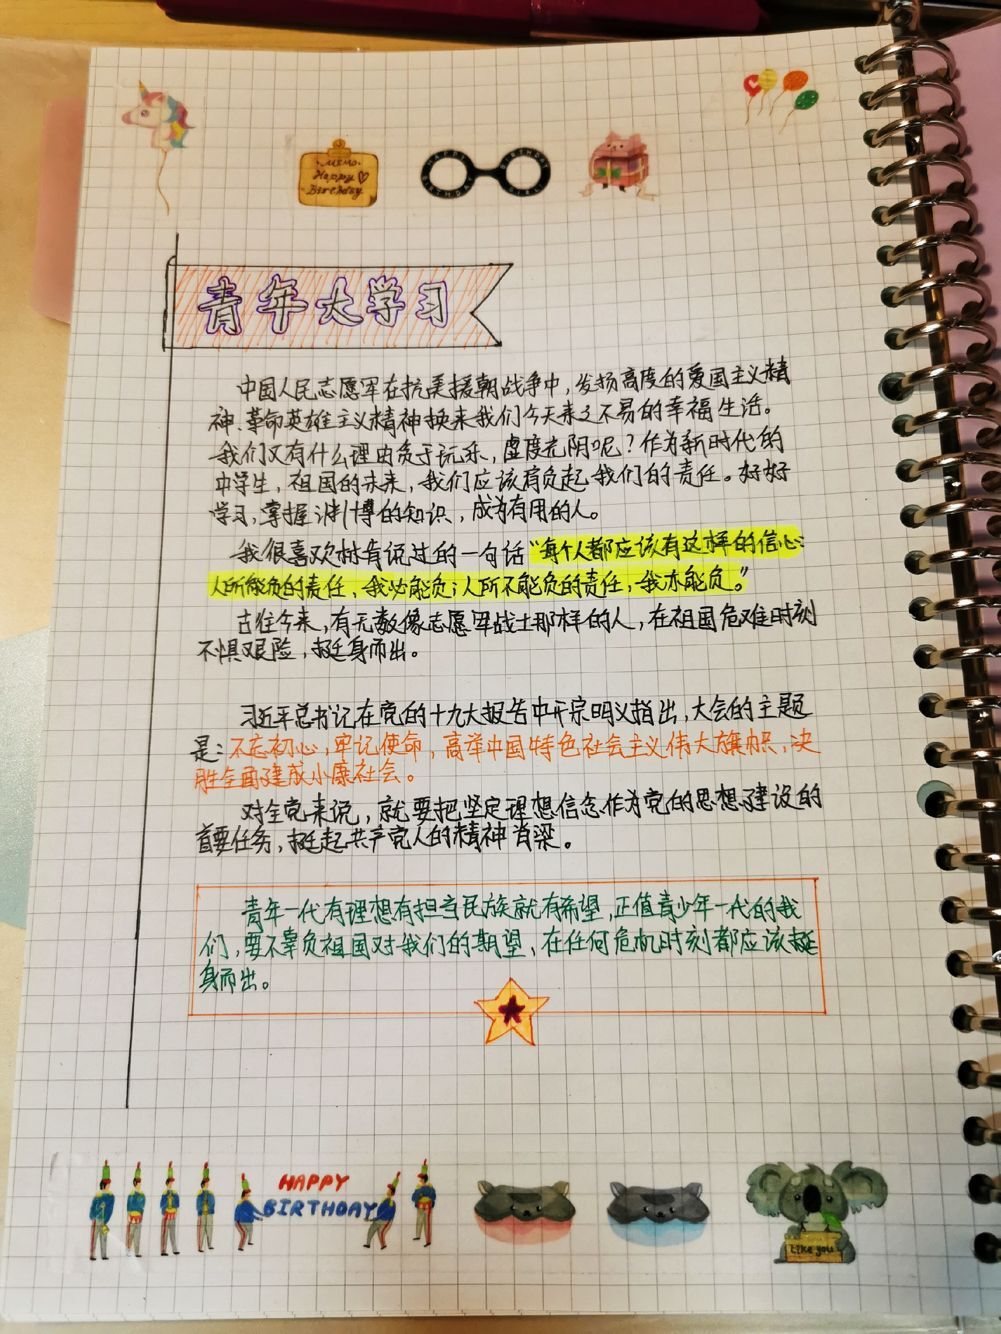 MEMO
Happy
Birthday
HAPPY BIRTHDAY
青年大学习
中国人民志愿军在抗美援朝战争中,发扬高度的爱国主义精
神、革命英雄主义精神换来我们今天来之不易的幸福生活。
我们又有什么理由负于玩乐,虚度光阴呢?作为新时代的
中学生,祖国的未来,我们应该肩负起我们的责任。好好
学习,掌握渊博的知识,成为有用的人。
我很喜欢林肯说过的一句话“每个人都应该有这样的信心:
人所能负的责任,我必能负;人所不能负的责任,我亦能负。”
古往今来,有无数像志愿军战士那样的人,在祖国危难时刻
不惧艰险,挺身而出。
习近平总书记在党的十九大报告中开宗明义指出,大会的主题
是:不忘初心,牢记使命,高举中国特色社会主义伟大旗帜,决
胜全面建成小康社会。
对全党来说,就要把坚定理想信念作为党的思想建设的
首要任务,挺起共产党人的精神脊梁。
青年一代有理想有担当民族就有希望,正值青少年一代的我
们,要不辜负祖国对我们的期望,在任何危机时刻都应该挺
身而出。
HAPPY
BIRTHDAY
Like you